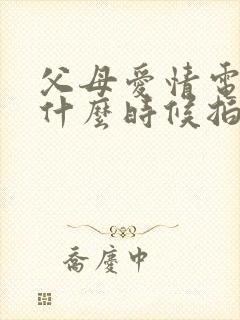 父母爱情電
什麼時候拍
喬慶中